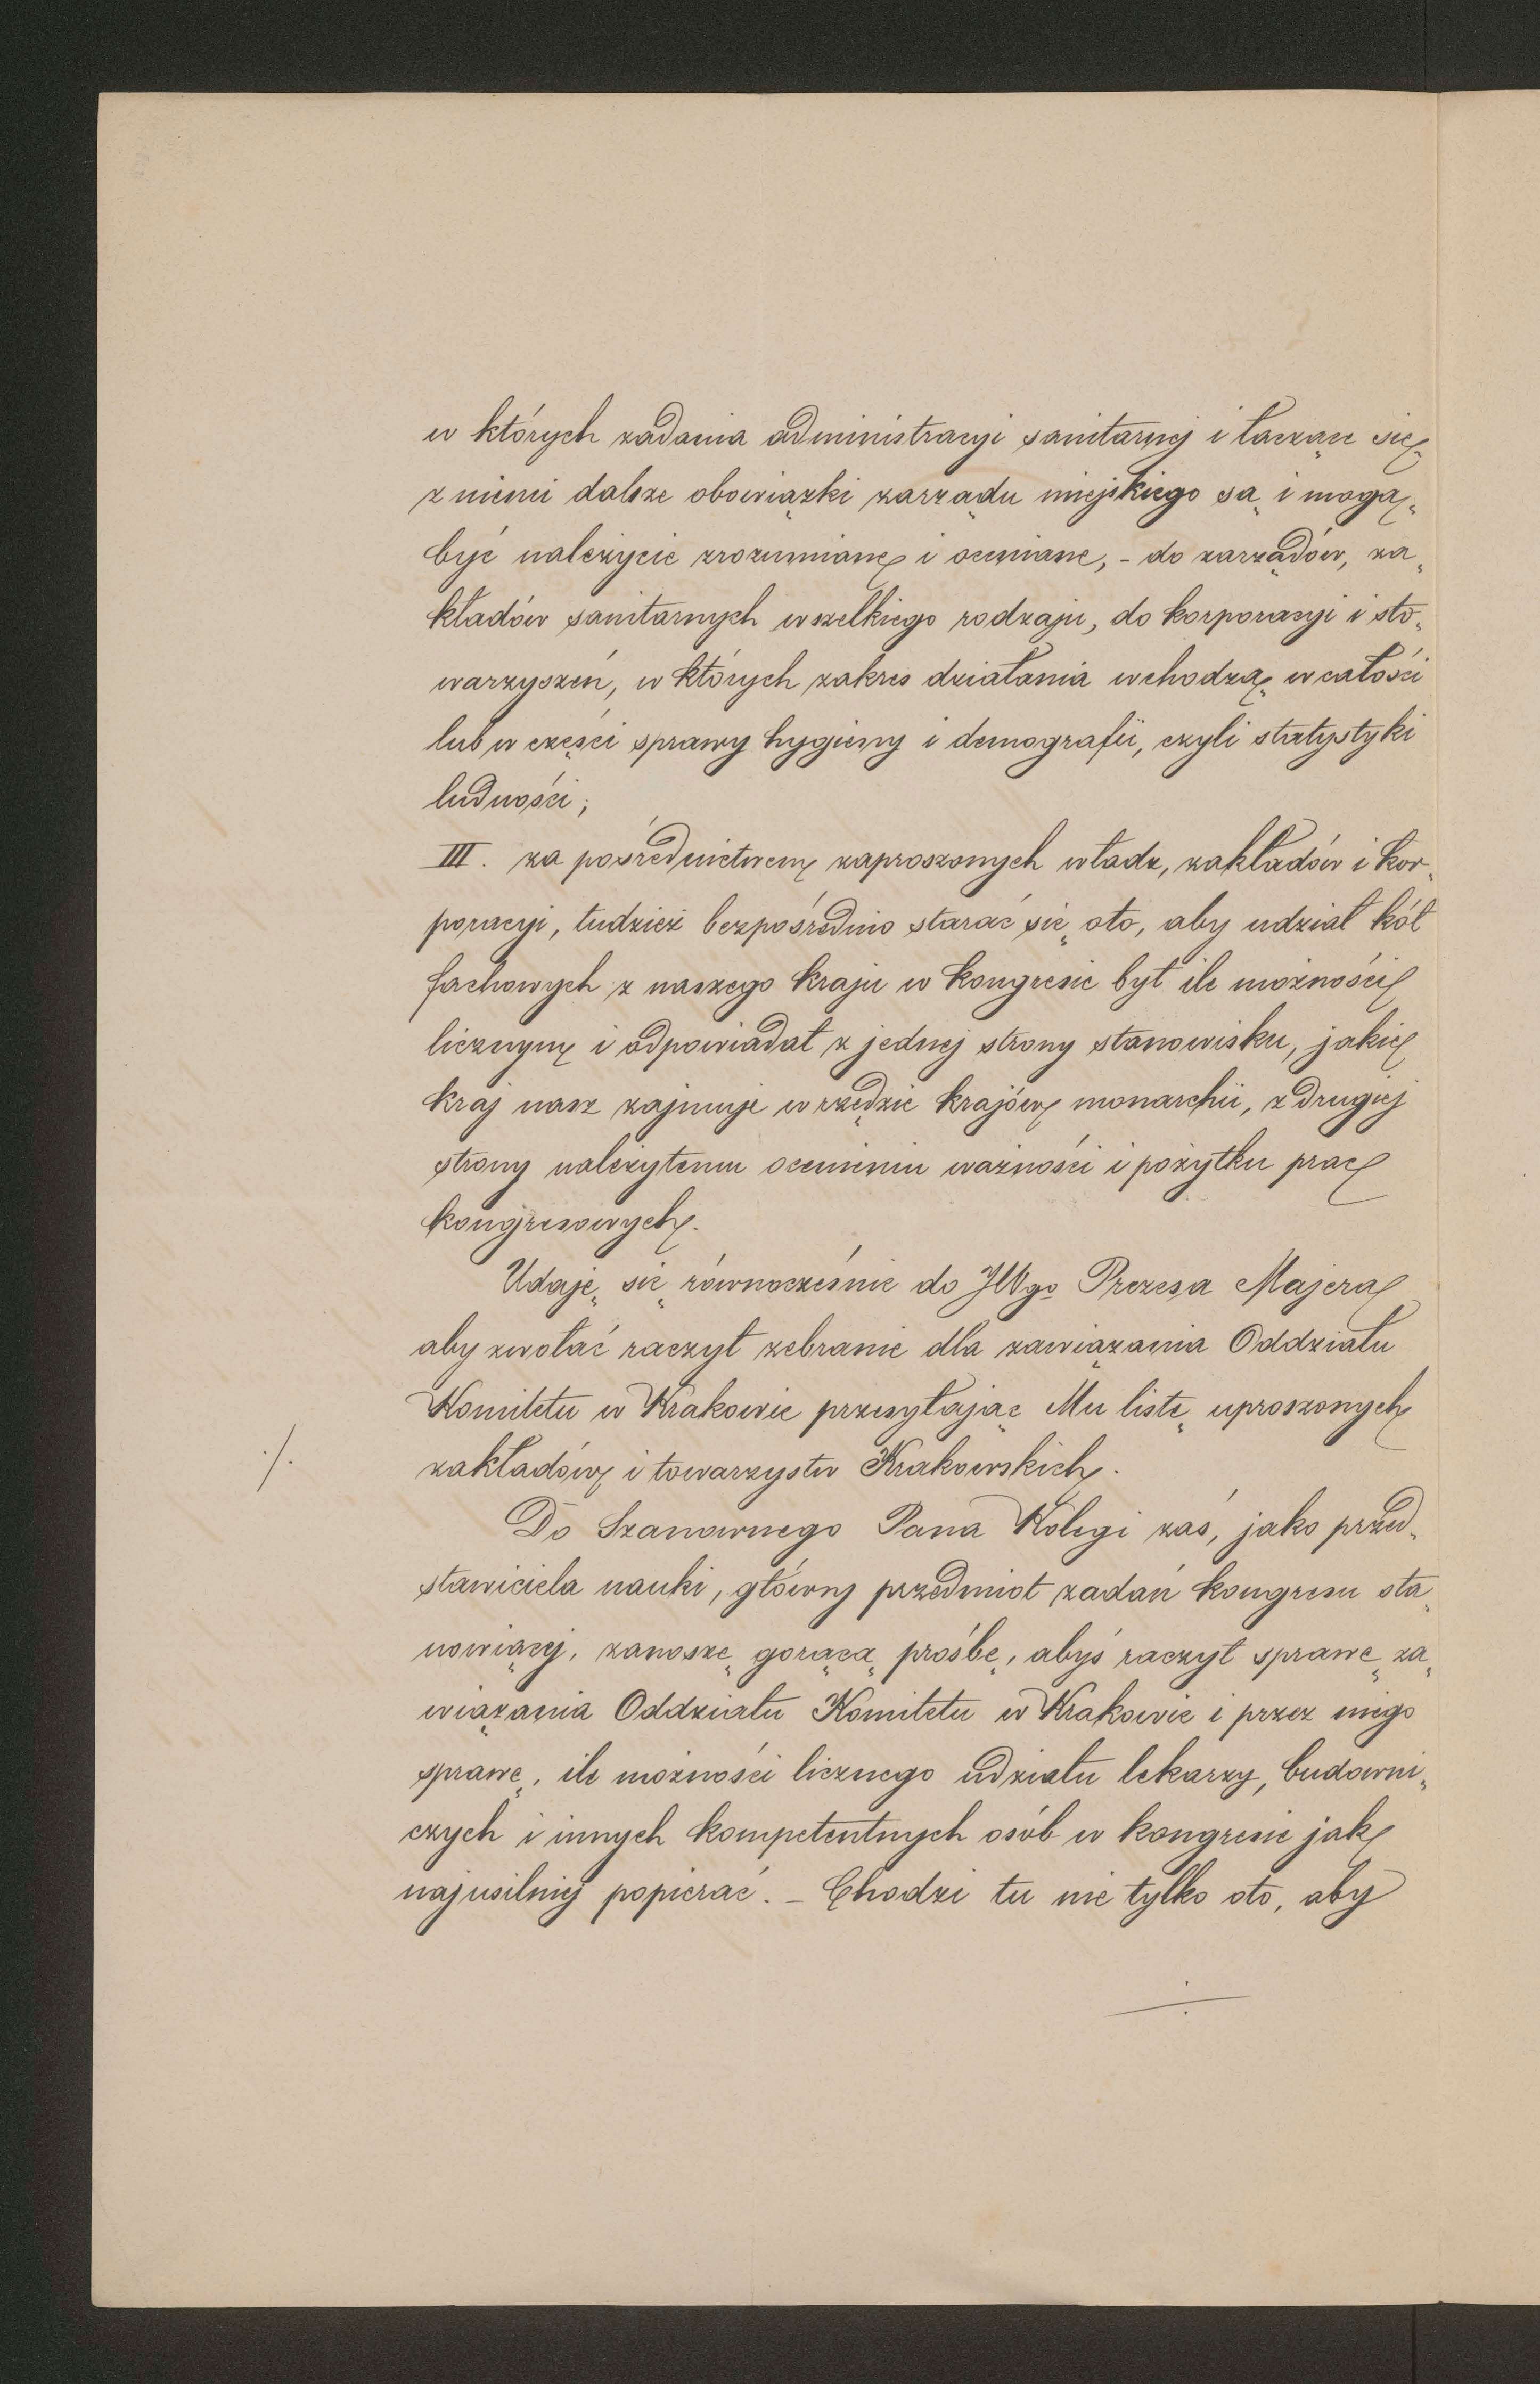 w których zadania administracyi sanitarnej i łączące się
z niemi dalsze obowiązki zarządu miejskiego są i mogą
być należycie zrozumiane i oceniane, - do zarządów, za„
kładów sanitarnych wszelkiego rodzaju, do korporacyi i sto„
warzyszeń, w których zakres działania wchodzą w całości
lub w części sprawy hygieny i demografii, czyli statystyki
ludności;
III. za pośrednictwem zaproszonych władz, zakładów i kor„
poracyi, tudzież bezpośrednio starać się oto, aby udział kół
fachowych z naszego kraju w kongresie był ile możności
licznym i odpowiadał z jednej strony stanowisku, jakie
kraj nasz zajmuje w rzędzie krajów monarchii, z drugiej
strony należytemu ocenieniu ważności i pożytku prac
kongresowych.
Udaję się równocześnie do JWgo Prezesa Majera
aby zwołać raczył zebranie dla zawiązania Oddziału
Komitetu w Krakowie przesyłając Mu listę uproszonych
./. zakładów i towarzystw Krakowskich.
Do Szanownego Pana Kolegi zaś, jako przed„
stawiciela nauki, główny przedmiot zadań kongresu sta„
nowiącej, zanoszę gorącą prośbę, abyś raczył sprawę za„
wiązania Oddziału Komitetu w Krakowie i przez niego
sprawę, ile możności licznego udziału lekarzy, budowni„
czych i innych kompetentnych osób w kongresie jak
najusilniej popierać. – Chodzi tu nie tylko oto, aby
./.